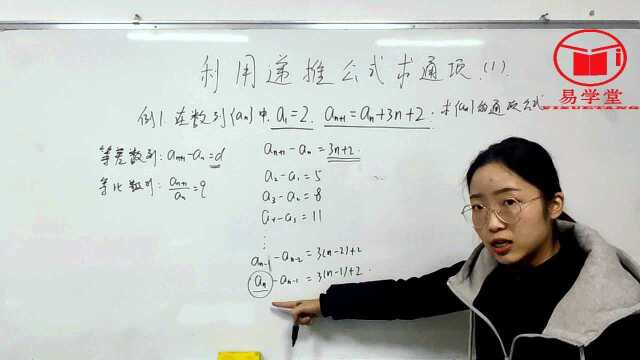 利用递推公式求通项(1)
易学堂
YIXUETANG
例1.在数列{an}中. a1=2. an+1=an+3n+2. 求{an}的通项公式
等差数列: an+1-an=d
等比数列: an+1/an=q
an+1-an=3n+2.
a2-a1=5
a3-a2=8
a4-a3=11
⋮
an-1-an-2=3(n-2)+2
an-an-1=3(n-1)+2.